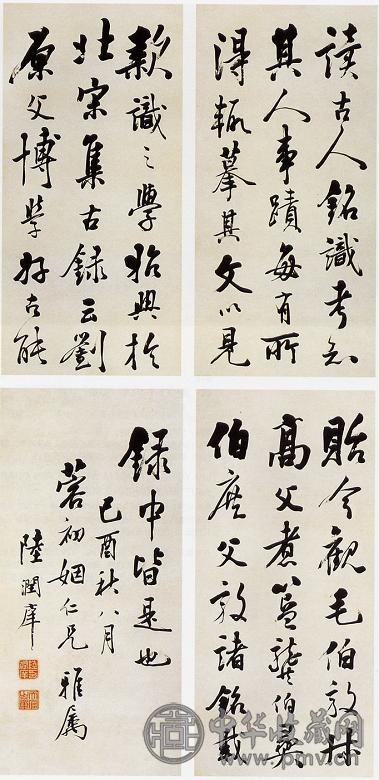 款識之學始興於
北宋集古錄云劉
原父博學好古能
讀古人銘識考知
其人事蹟每有所
得輒摹其文以見
貽今觀毛伯敦叔
高父煮簋龔伯彝
伯庶父敦諸銘載
錄中皆是也
己酉秋八月
蓉初姻仁兄 雅屬
陸潤庠
中华收藏网
www.pmv.cn